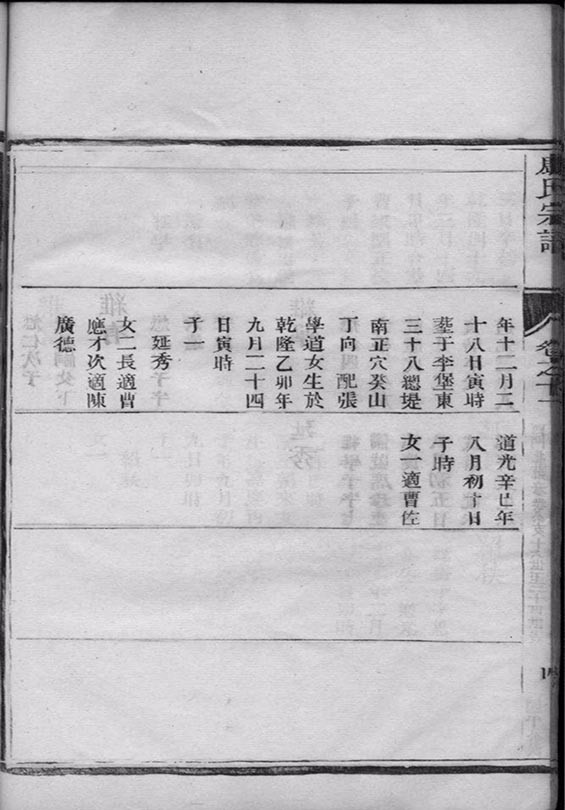 氏宗譜
卷之十一
年十二月二
十八日寅時
葬于李堡東
三十八總堤
南正穴癸山
丁向 配張
學道女生於
乾隆乙卯年
九月二十四
日寅時
子一
延秀
女二長適曹
應才次適陳
廣德
道光辛巳年
八月初十日
子時
女一適曹佐